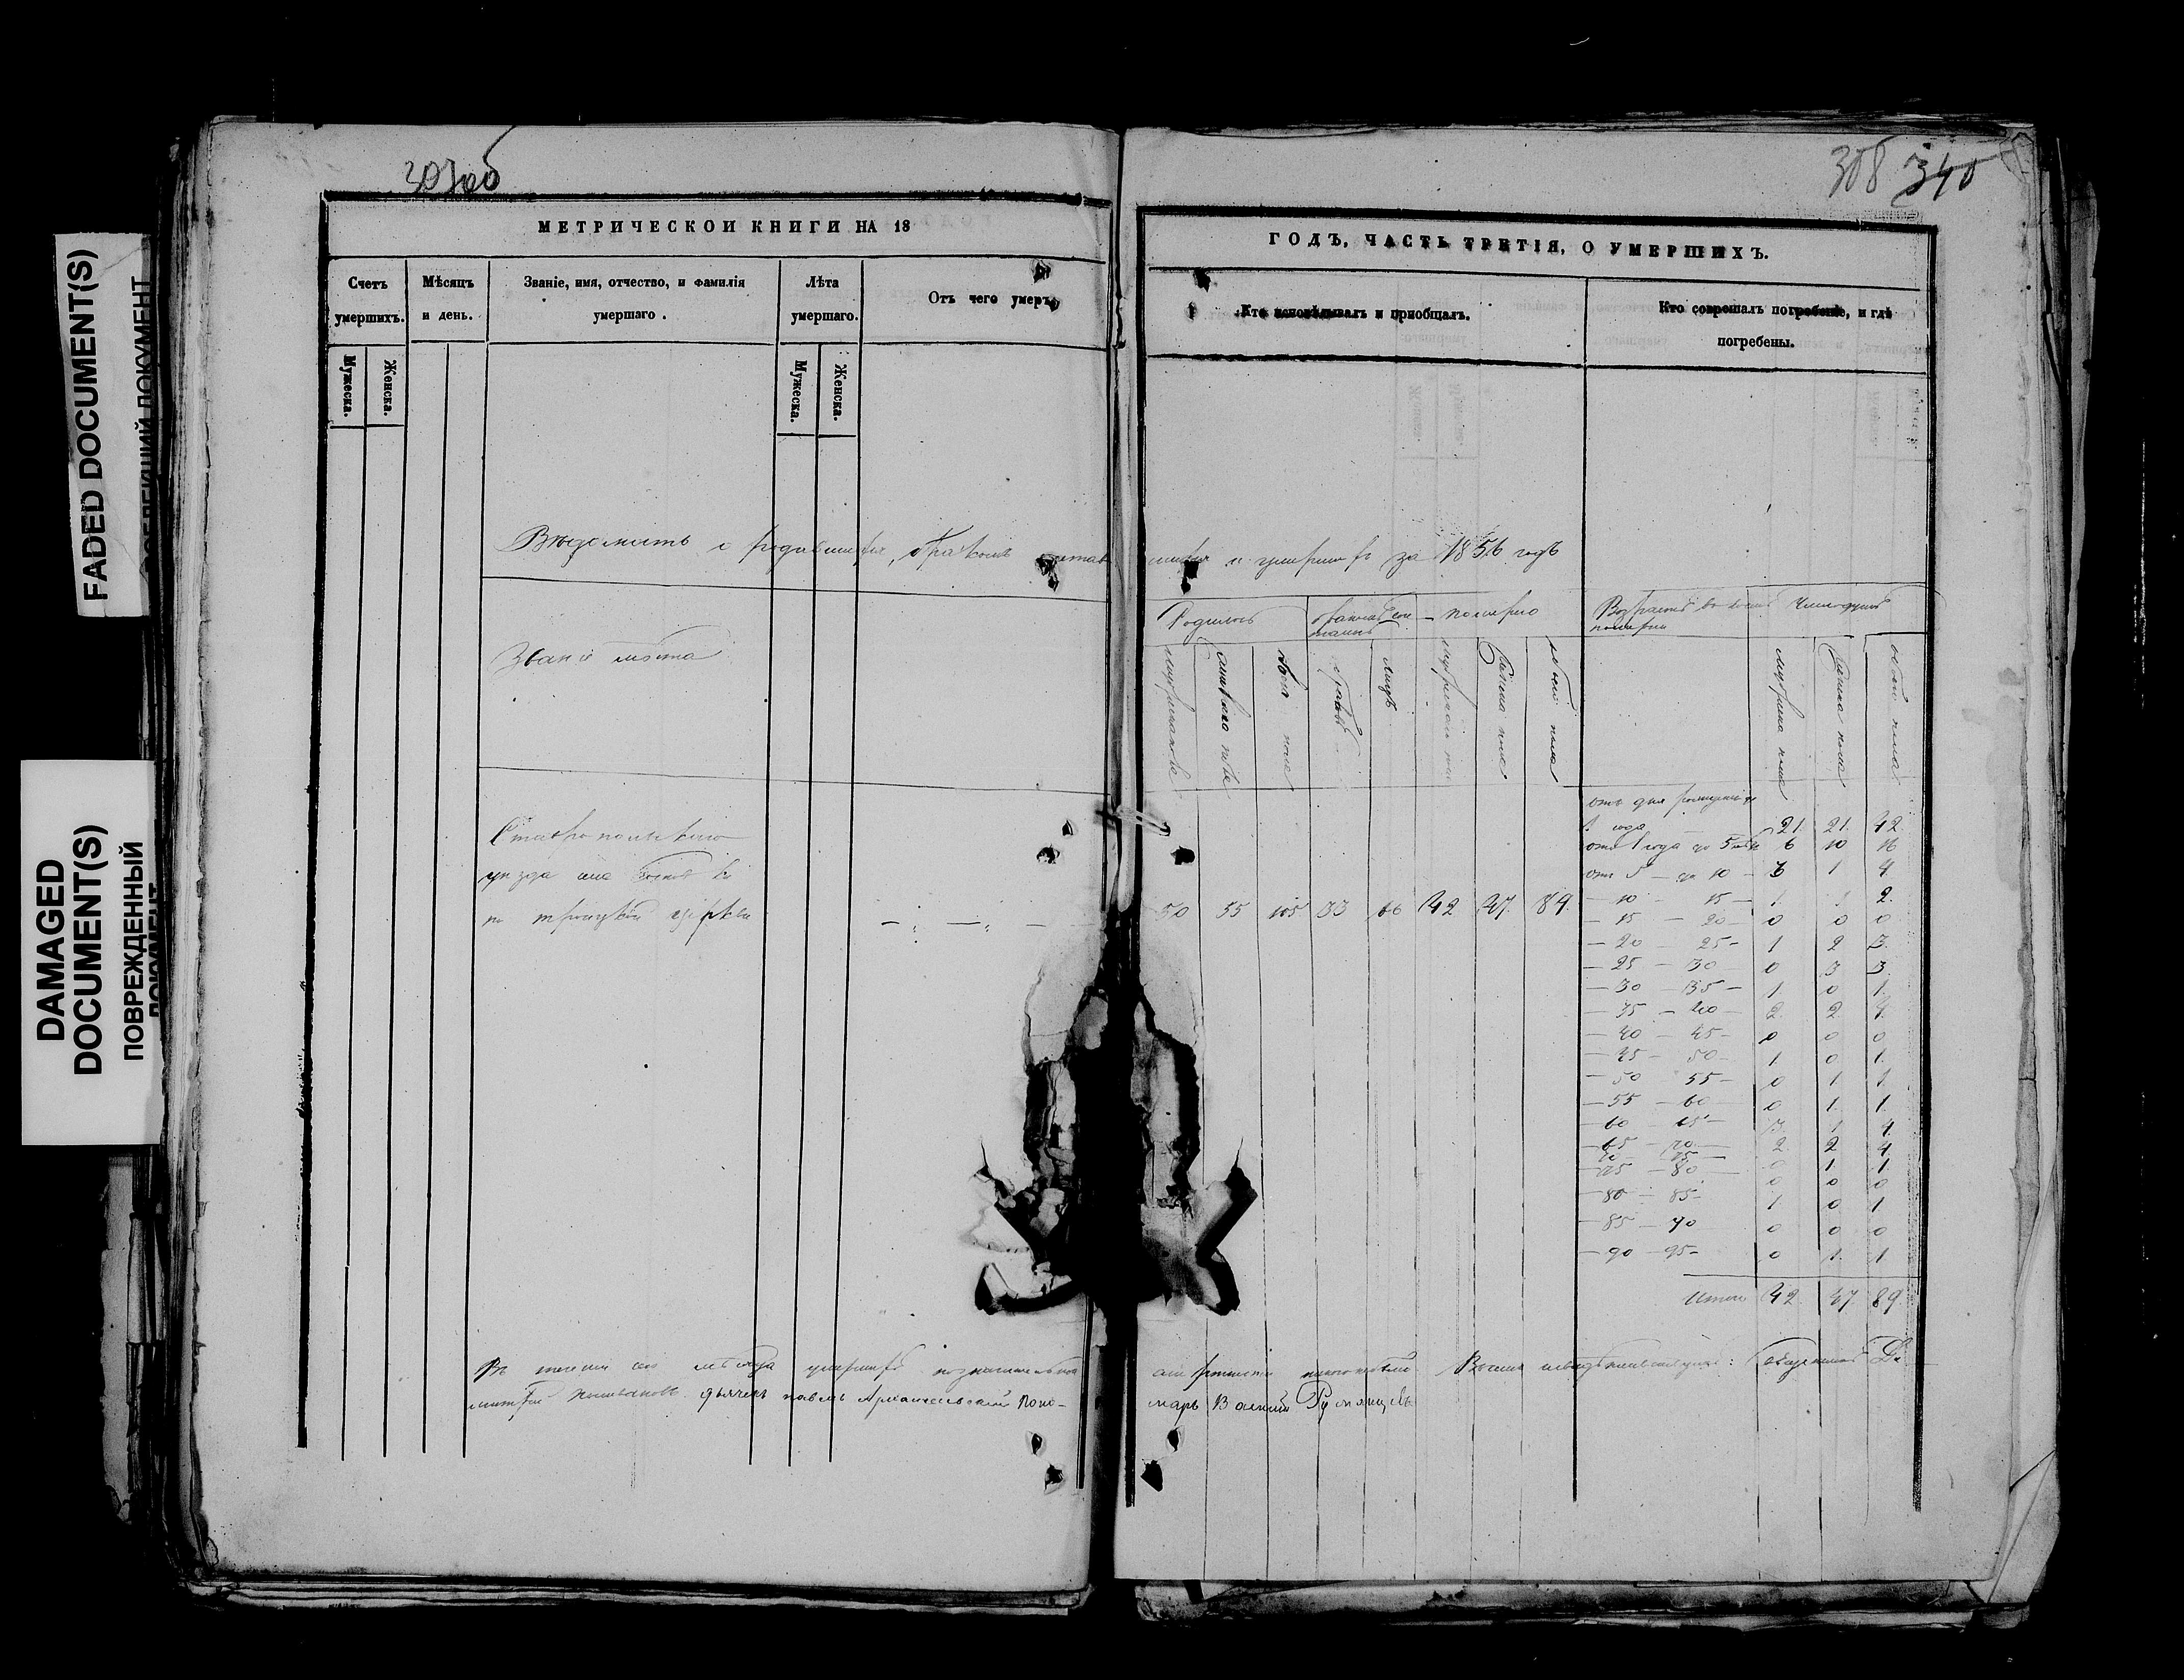 FADED DOCUMENT(S)
DAMAGED
DOCUMENT(S)
ПОВРЕЖДЕННЫЙ
ДОКУМЕНТ
307об
МЕТРИЧЕСКОЙ КНИГИ НА 18
Счетъ умершихъ.
Мѣсяцъ и день.
Званіе, имя, отчество, и фамилія умершаго.
Лѣта умершаго.
Отъ чего умеръ.
Мужеска.
Женска.
Мужеска.
Женска.
308 340
ГОДЪ, ЧАСТЬ ТРЕТІЯ, О УМЕРШИХЪ.
Кто исповѣдывалъ и пріобщалъ.
Кто совершалъ погребеніе, и гдѣ погребены.
Вѣдомость о родившихся, бракомъ сочетав шихся и умершихъ за 1856 годъ
Званіе мѣста
Родилось
помѣрло
мужеска пола
женскаго пола
обоего пола
браковъ
лицъ
мужеска пола
женска пола
обоего пола
мужеска пола
женска пола
обоего пола
Ставропольскаго
уѣзда села
по троицкой церкви
50 55 105 33 66 42 47. 89.
отъ дня рожденія до
1 года 21. 21. 42.
отъ 1 года до 5 6 10 16
отъ 5 — до 10 — 3 1 4
— 10 — 15 — 1. 1 2.
— 15 — 20 — 0 0 0
— 20 — 25 — 1 2 3.
— 25 — 30 0 3 3
— 30 — 35 — 1. 0 1.
— 35 — 40 — 2. 2 4.
— 40 — 45 — 0 0 0
— 45 — 50 — 1 0 1.
— 50 — 55 — 0 1 1
— 55 — 60 0 1. 1.
— 60 — 65 — 3. 1 4
— 65 — 70 — 2 2 4
70 — 75 — 0 1. 1.
— 75 — 80 — 0 0 0
— 80 — 85 — 1. 0 1
— 85 — 90 0 0 0
— 90 — 95 — 0 1. 1
Итого 42. 47. 89.
Въ теченіи сего мѣсяца умершихъ
дьячекъ павелъ Архангельскій Поно-
марь Василій Румянцевъ